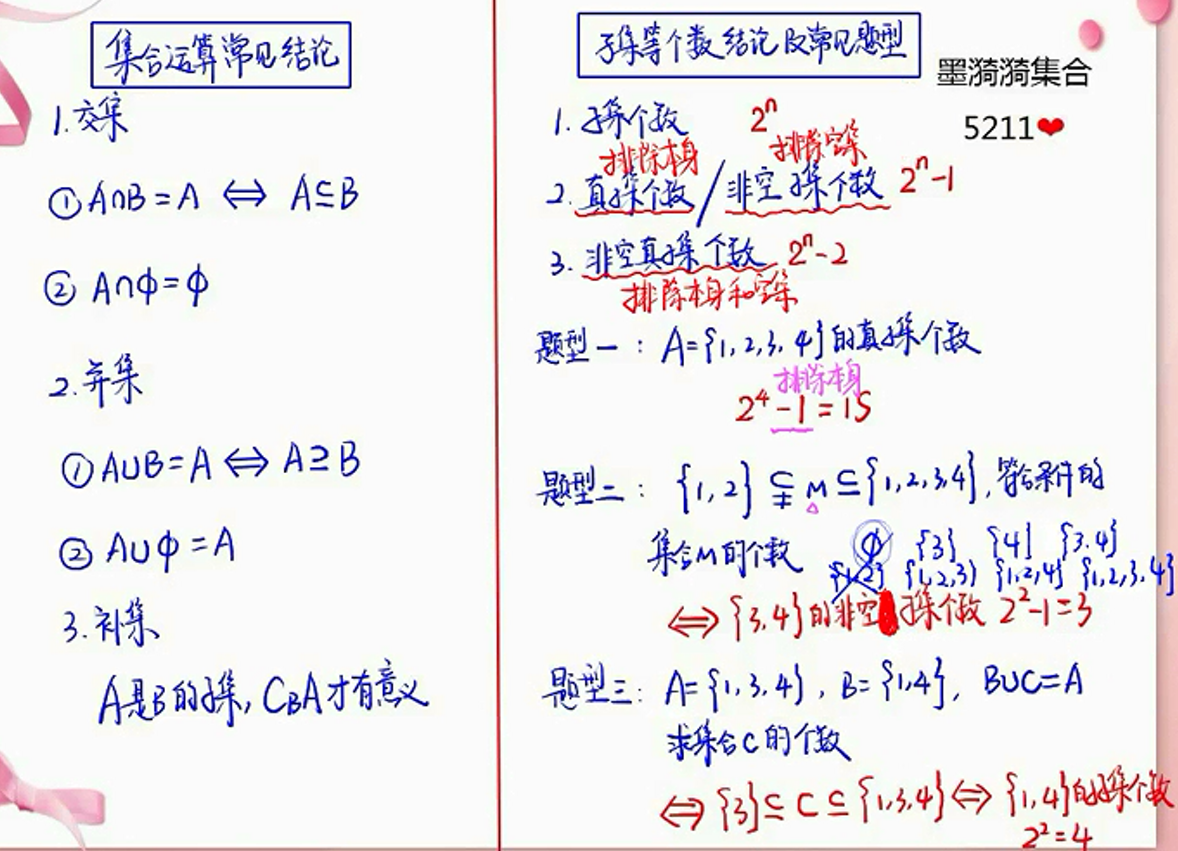 集合运算常见结论
1.交集
①A∩B=A ⇔ A⊆B
② A∩ϕ=ϕ
2.并集
①A∪B=A⇔A⊇B
② A∪ϕ=A
3.补集
A是B的子集,C_BA才有意义
子集等个数结论及常见题型
墨漪漪集合
5211❤
1.子集个数 2ⁿ
排除本身 排除空集
2.真子集个数/非空子集个数 2ⁿ-1
3.非空真子集个数 2ⁿ-2
排除本身和空集
题型一:A={1,2,3,4}的真子集个数
排除本身
2⁴-1=15
题型二:{1,2}⊊M⊆{1,2,3,4},符合条件的
集合M的个数 ϕ {3} {4} {3.4}
{1,2} {1,2,3} {1,2,4} {1,2,3,4}
⇔{3,4}的非空子集个数 2²-1=3
题型三:A={1,3,4},B={1,4},B∪C=A
求集合C的个数
⇔{3}⊆C⊆{1,3,4}⇔{1,4}的子集个数
2²=4